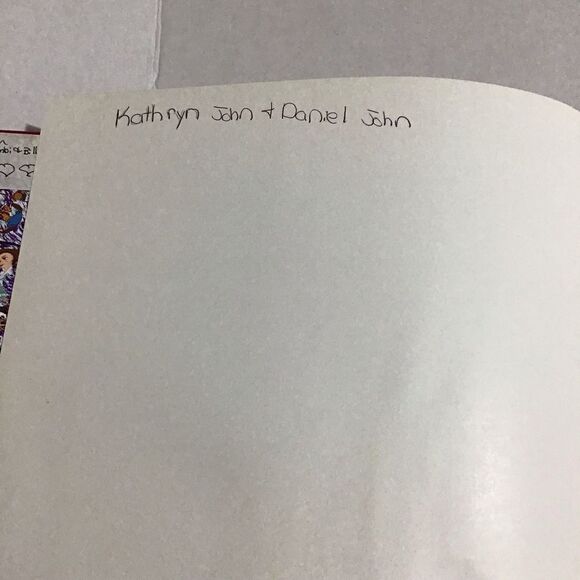 Kathryn John + Daniel John